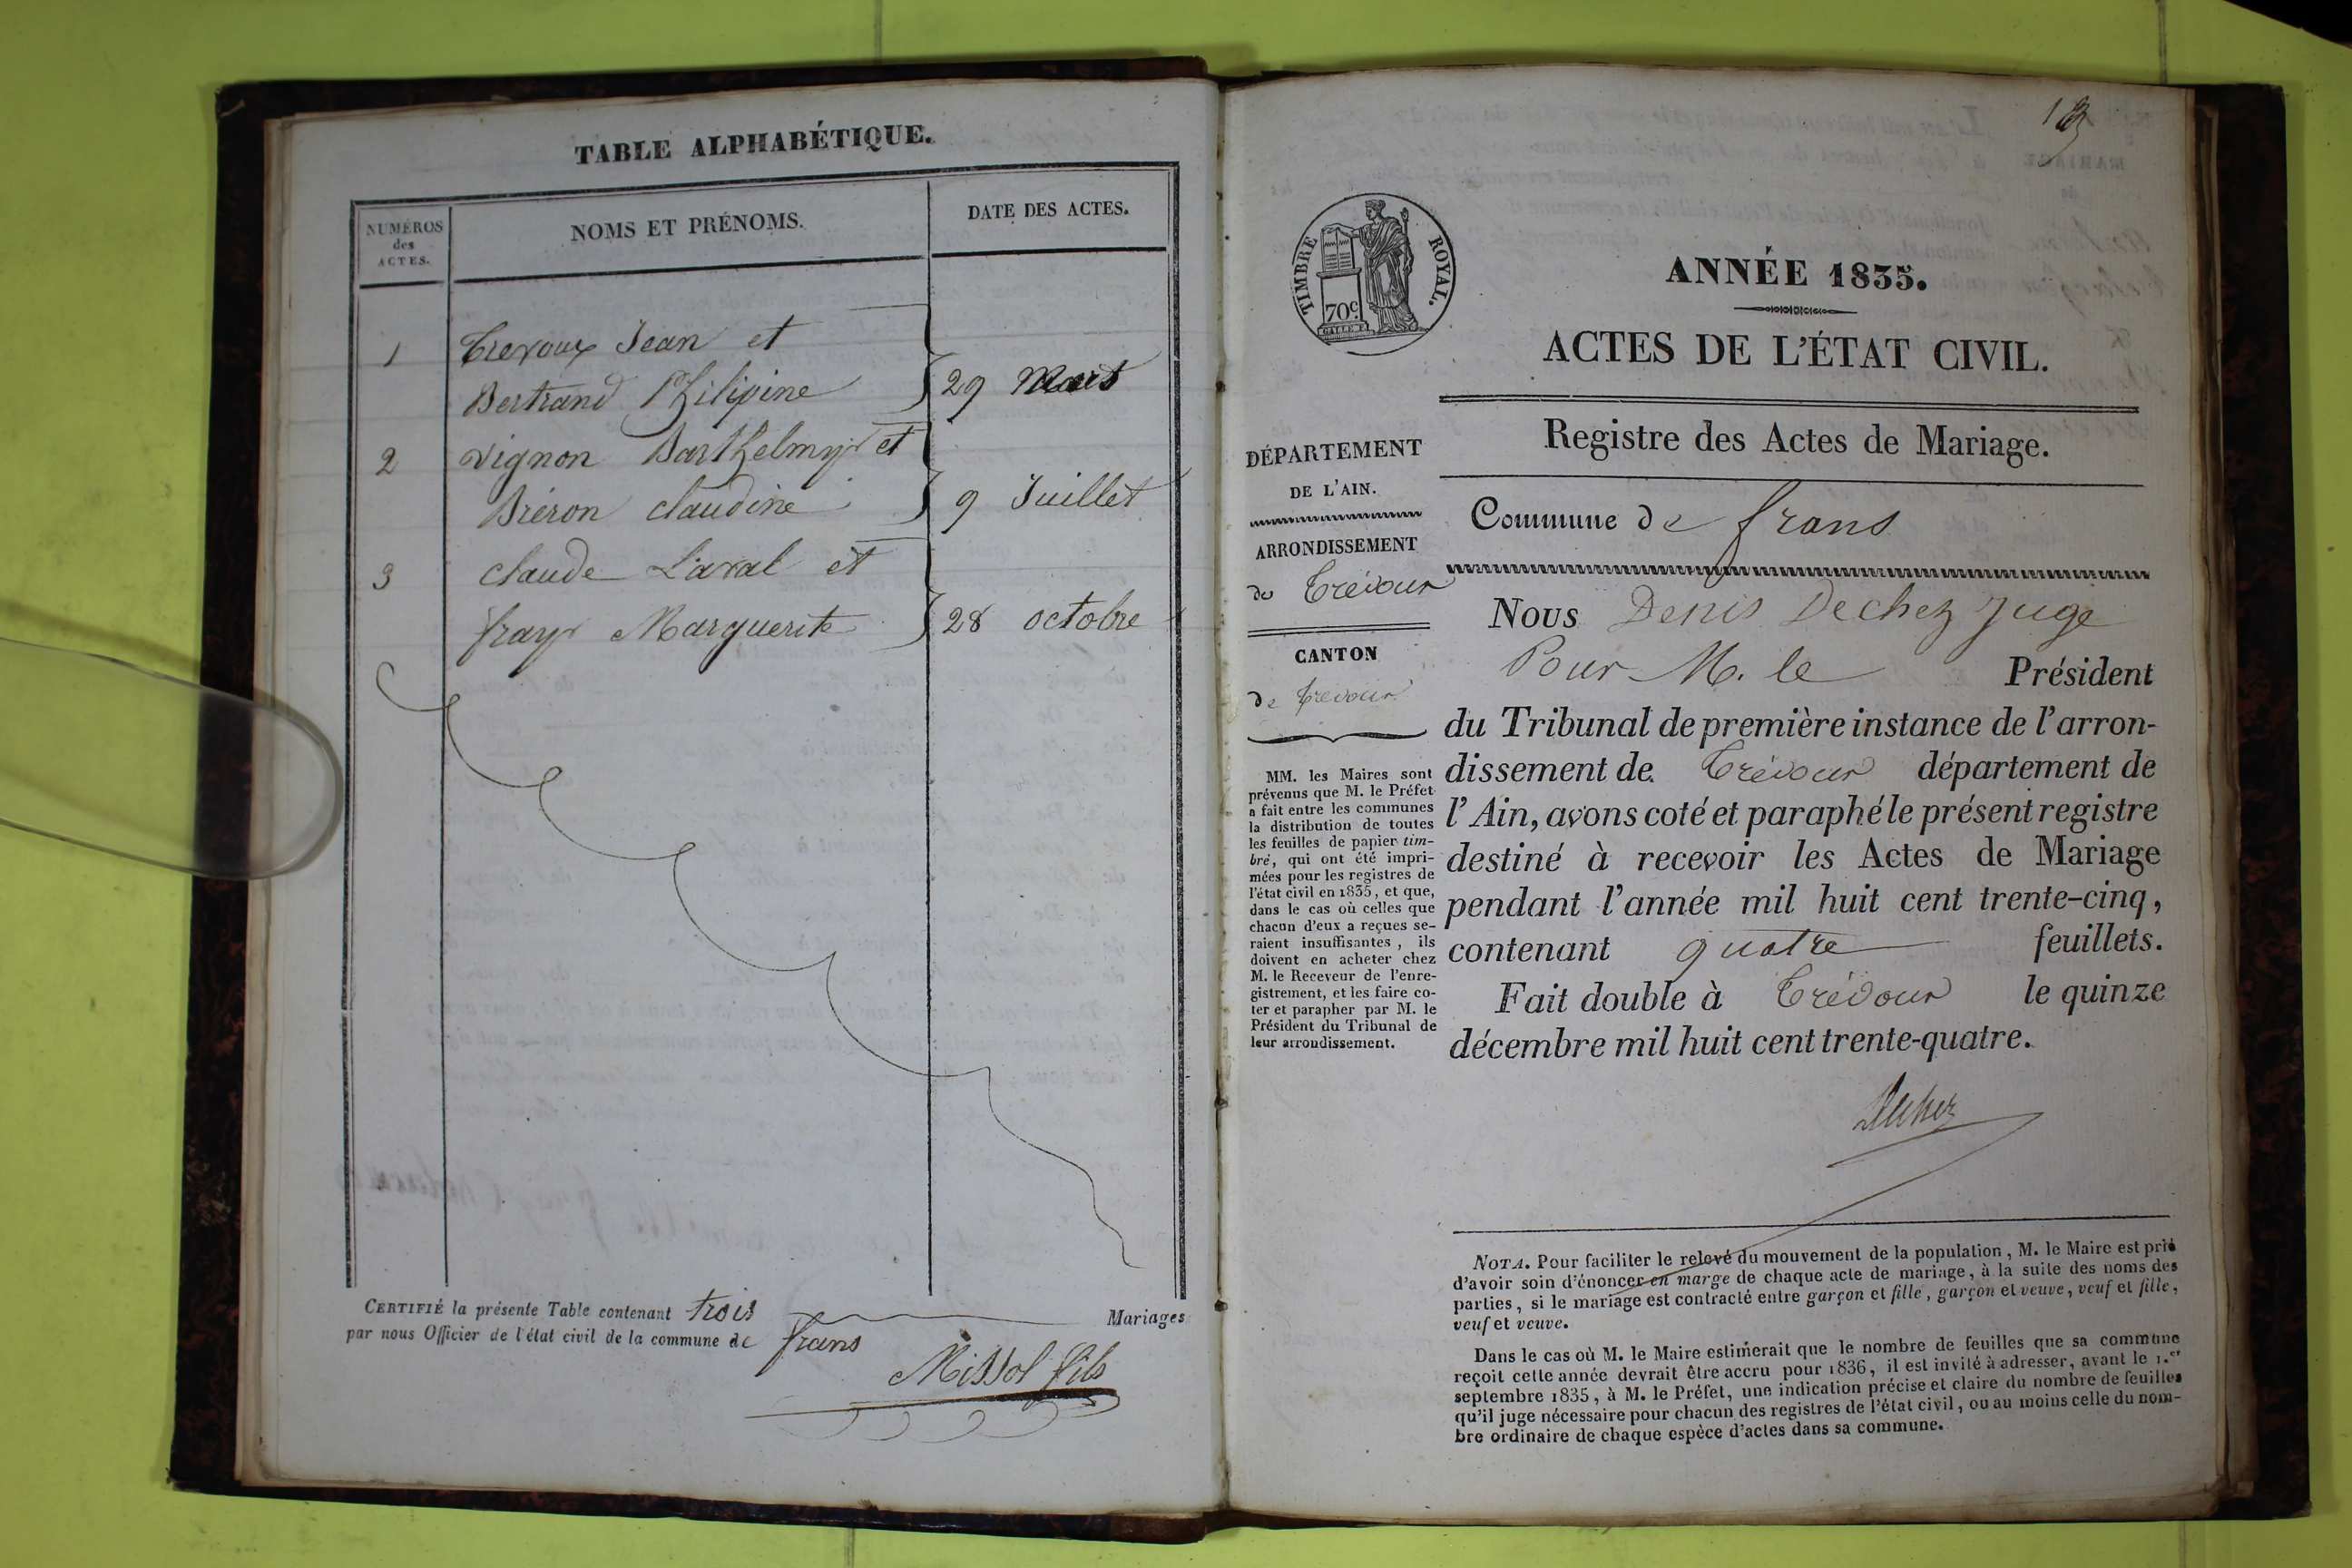 TABLE ALPHABÉTIQUE.
NUMÉROS
des
ACTES.
NOMS ET PRÉNOMS.
DATE DES ACTES.
1 Trevoux Jean et
Bertrand Philipine 29 Mars
2 Vignon Barthelmy et
Briéron claudine 9 Juillet
3 Claude Laval et
fray Marguerite 28 octobre
CERTIFIÉ la présente Table contenant trois Mariages
par nous Officier de l'état civil de la commune de frans
Missol fils
TIMBRE ROYAL.
70c.
ANNÉE 1835.
ACTES DE L'ÉTAT CIVIL.
Registre des Actes de Mariage.
DÉPARTEMENT
DE L'AIN.
ARRONDISSEMENT
de Trévoux
CANTON
de Trévoux
MM. les Maires sont
prévenus que M. le Préfet
a fait entre les communes
la distribution de toutes
les feuilles de papier tim-
bré, qui ont été impri-
mées pour les registres de
l'état civil en 1835, et que,
dans le cas où celles que
chacun d'eux a reçues se-
raient insuffisantes, ils
doivent en acheter chez
M. le Receveur de l'enre-
gistrement, et les faire co-
ter et parapher par M. le
Président du Tribunal de
leur arrondissement.
Commune de frans
Nous Denis Dechez Juge
Pour M. le Président
du Tribunal de première instance de l'arron-
dissement de Trévoux département de
l'Ain, avons coté et paraphé le présent registre
destiné à recevoir les Actes de Mariage
pendant l'année mil huit cent trente-cinq,
contenant quatre feuillets.
Fait double à Trévoux le quinze
décembre mil huit cent trente-quatre.
Dechez
NOTA. Pour faciliter le relevé du mouvement de la population, M. le Maire est prié
d'avoir soin d'énoncer en marge de chaque acte de mariage, à la suite des noms des
parties, si le mariage est contracté entre garçon et fille, garçon et veuve, veuf et fille,
veuf et veuve.
Dans le cas où M. le Maire estimerait que le nombre de feuilles que sa commune
reçoit cette année devrait être accru pour 1836, il est invité à adresser, avant le 1.er
septembre 1835, à M. le Préfet, une indication précise et claire du nombre de feuilles
qu'il juge nécessaire pour chacun des registres de l'état civil, ou au moins celle du nom-
bre ordinaire de chaque espèce d'actes dans sa commune.